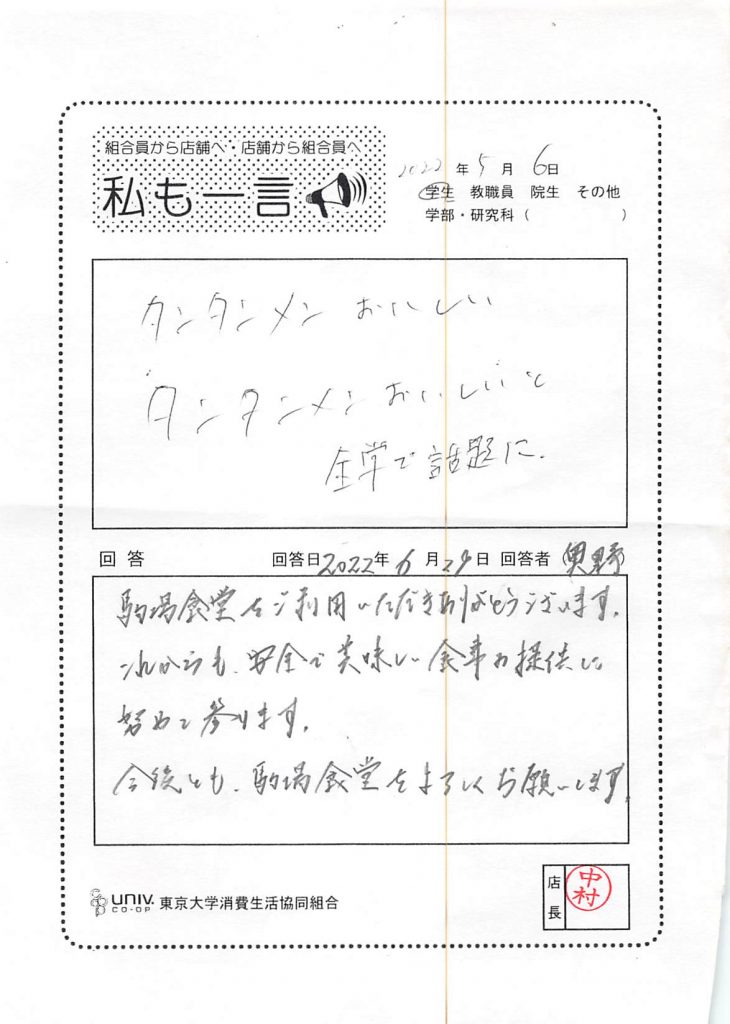 組合員から店舗へ・店舗から組合員へ
私も一言
2022年5月6日
学生 教職員 院生 その他
学部・研究科（ ）
タンタンメン おいしい
タンタンメンおいしいと
全学で話題に.
回答 回答日2022年6月29日 回答者(奥野)
駒場食堂をご利用いただきありがとうございます。
これからも、安全で美味しい食事の提供に
努めて参ります。
今後とも、駒場食堂をよろしくお願いします。
UNIV. CO-OP 東京大学消費生活協同組合
店長 中村